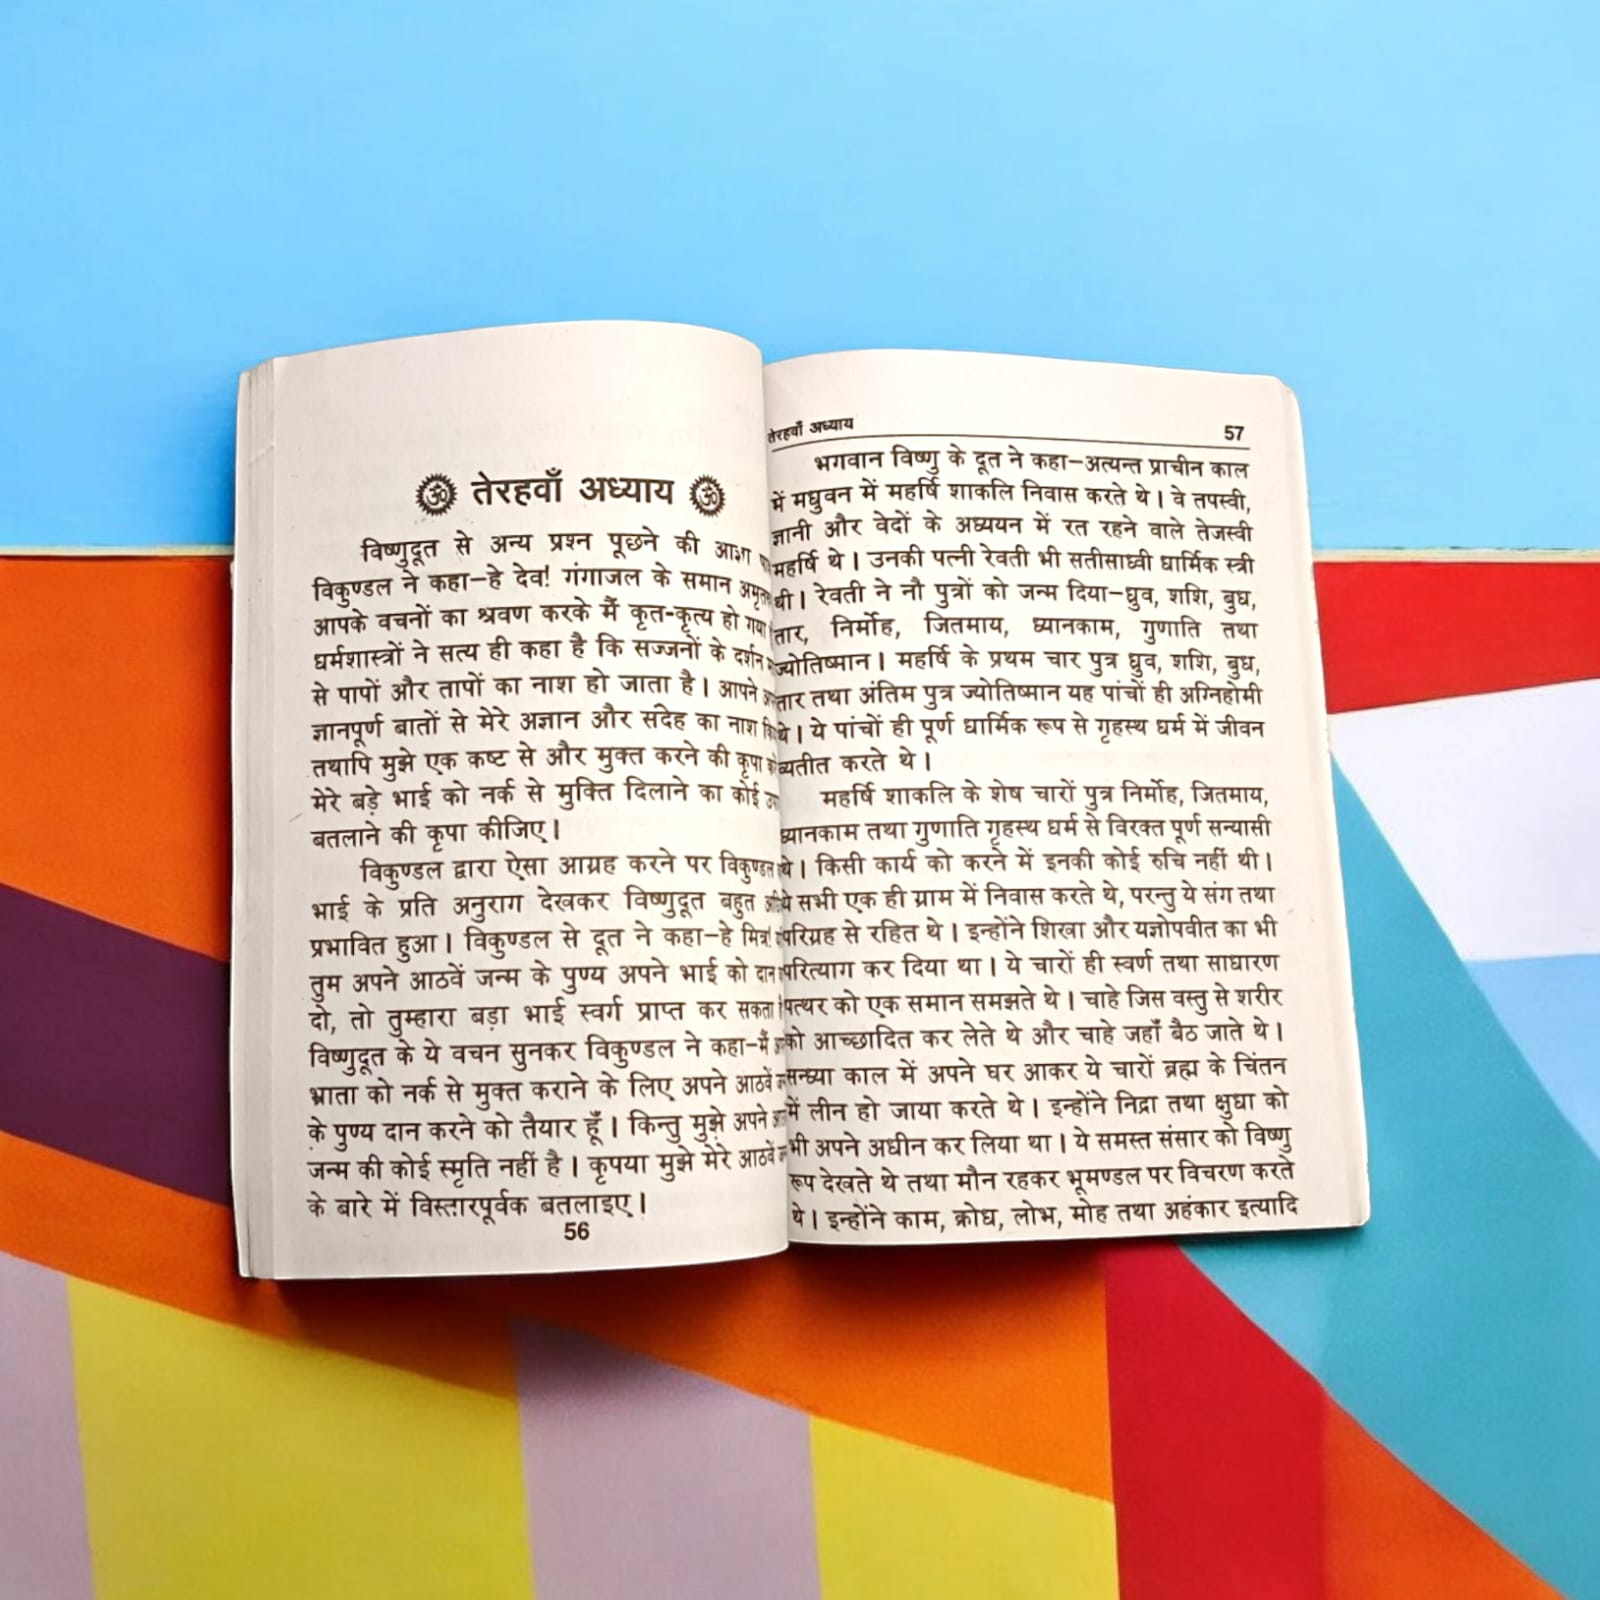 ॐ तेरहवाँ अध्याय ॐ
विष्णुदूत से अन्य प्रश्न पूछने की आज्ञा
विकुण्डल ने कहा–हे देव! गंगाजल के समान
आपके वचनों का श्रवण करके मैं कृत-कृत्य हो गया
धर्मशास्त्रों ने सत्य ही कहा है कि सज्जनों के दर्शन
से पापों और तापों का नाश हो जाता है। आपने
ज्ञानपूर्ण बातों से मेरे अज्ञान और संदेह का नाश
तथापि मुझे एक कष्ट से और मुक्त करने की कृपा
मेरे बड़े भाई को नर्क से मुक्ति दिलाने का कोई
बतलाने की कृपा कीजिए।
विकुण्डल द्वारा ऐसा आग्रह करने पर विकुण्डल
भाई के प्रति अनुराग देखकर विष्णुदूत बहुत
प्रभावित हुआ। विकुण्डल से दूत ने कहा–हे मित्र!
तुम अपने आठवें जन्म के पुण्य अपने भाई को दान
दो, तो तुम्हारा बड़ा भाई स्वर्ग प्राप्त कर सकता
विष्णुदूत के ये वचन सुनकर विकुण्डल ने कहा–मैं
भ्राता को नर्क से मुक्त कराने के लिए अपने आठवें
के पुण्य दान करने को तैयार हूँ। किन्तु मुझे अपने
जन्म की कोई स्मृति नहीं है। कृपया मुझे मेरे आठवें
के बारे में विस्तारपूर्वक बतलाइए।
56
तेरहवाँ अध्याय 57
भगवान विष्णु के दूत ने कहा–अत्यन्त प्राचीन काल
में मधुवन में महर्षि शाकलि निवास करते थे। वे तपस्वी,
ज्ञानी और वेदों के अध्ययन में रत रहने वाले तेजस्वी
महर्षि थे। उनकी पत्नी रेवती भी सतीसाध्वी धार्मिक स्त्री
थी। रेवती ने नौ पुत्रों को जन्म दिया–ध्रुव, शशि, बुध,
तार, निर्मोह, जितमाय, ध्यानकाम, गुणाति तथा
ज्योतिष्मान। महर्षि के प्रथम चार पुत्र ध्रुव, शशि, बुध,
तार तथा अंतिम पुत्र ज्योतिष्मान यह पांचों ही अग्निहोमी
थे। ये पांचों ही पूर्ण धार्मिक रूप से गृहस्थ धर्म में जीवन
व्यतीत करते थे।
महर्षि शाकलि के शेष चारों पुत्र निर्मोह, जितमाय,
ध्यानकाम तथा गुणाति गृहस्थ धर्म से विरक्त पूर्ण सन्यासी
थे। किसी कार्य को करने में इनकी कोई रुचि नहीं थी।
ये सभी एक ही ग्राम में निवास करते थे, परन्तु ये संग तथा
परिग्रह से रहित थे। इन्होंने शिखा और यज्ञोपवीत का भी
परित्याग कर दिया था। ये चारों ही स्वर्ण तथा साधारण
पत्थर को एक समान समझते थे। चाहे जिस वस्तु से शरीर
को आच्छादित कर लेते थे और चाहे जहाँ बैठ जाते थे।
सन्ध्या काल में अपने घर आकर ये चारों ब्रह्म के चिंतन
में लीन हो जाया करते थे। इन्होंने निद्रा तथा क्षुधा को
भी अपने अधीन कर लिया था। ये समस्त संसार को विष्णु
रूप देखते थे तथा मौन रहकर भूमण्डल पर विचरण करते
थे। इन्होंने काम, क्रोध, लोभ, मोह तथा अहंकार इत्यादि